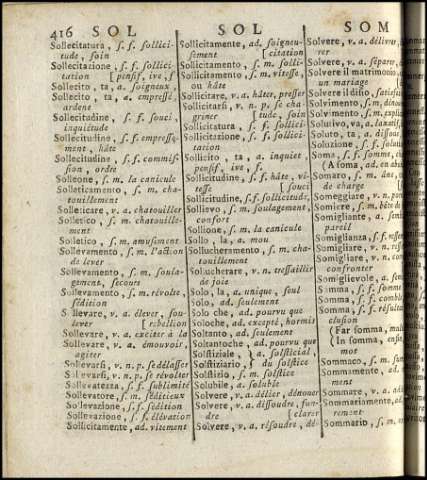 416 SOL SOL SOM
Sollecitatura, s. f. sollici-
tude, soin
Sollecitazione, s. f. sollici-
tation [ pensif, ive, f
Sollecito, ta, a. soigneux,
Sollecito, ta, a. empressé
ardene
Sollecitudine, s. f. souci,
inquiétude
Sollecitudine, s. f. empresse-
ment, hâte
Sollecitudine, s. f. commis-
sion, ordre
Solleone, s. m. la canicule
Solleticamento, s. m. cha-
touillement
Solleticare, v. a. chatouiller
Solletico, s. m. chatouille-
ment
Solletico, s. m. amusement
Sollevamento, s. m. l'action
de lever
Sollevamento, s. m. soula-
gement, secours
Sollevamento, s. m. révolte,
sédition
Sollevare, v. a. élever, sou-
lever [ rebellion
Sollevare, v. a. exciter à la
Sollevare, v. a. émouvoir,
agiter
Sollevarsi, v. n. p. se délasser
Sollevarsi, v. n. p. se révolter
Sollevatezza, s. f. sublimité
Sollevatore, s. m. séditieux
Sollevazione, s. f. sédition
Sollevazione, s. f. élévation
Sollicitamente, ad. vitement
Sollicitamente, ad. soigneu-
sement [ citation
Sollicitamento, s. m. solli-
Sollicitamento, s. m. vitesse,
ou hâte
Sollicitare, v. a. hâter, presser
Sollicitarsi, v. n. p. se cha-
griner [ tude, soin
Sollicitatura, s. f. sollici-
Sollicitazione, s. f. sollici-
tation
Sollicito, ta, a. inquiet,
pensif, ive, f.
Sollicitudine, s. f. hâte, vi-
tesse [ souci
Sollicitudine, s. f. sollicitude,
Sollievo, s. m. soulagement,
confort
Sollione, s. m. la canicule
Sollo, la, a. mou
Sollucheramento, s. m. cha-
touillement
Sollucherare, v. n. tressaillir
de joie
Solo, la, a. unique, seul
Solo, ad. seulement
Solo che, ad. pourvu que
Soloche, ad. excepté, hormis
Soltanto, ad. seulement
Soltantoche, ad. pourvu que
Solstiziale, } a. solsticial,
Solstiziario, } du solstice
Solstizio, s. m. solstice
Solubile, a. soluble
Solvere, v. a. délier, dénouer
Solvere, v. a. dissoudre, fon-
dre [ clarer
Solvere, v. a. résoudre, dé-
Solvere, v. a. délivrer,
Solvere, v. a. séparer,
Solvere il matrimonio,
un mariage
Solvere il disio, satisfai
Solvimento, s. m. dénou
Solvimento, s. m. explic
Solutivo, va, a. laxatif
Soluto, ta, a. dissous,
Soluzione, s. f. soluti
Soma, s. f. somme,
(A soma, ad. en abon
Somaro, s. m. âne,
de charge
Someggiare, v. n. port
Somiere, s. m. bête de
Somigliante, a. sem
pareil
Somiglianza, s. f. ressem
Somigliare, v. n. ress
Somigliare, v. n. com
confronter
Somiglievole, a. sem
Somma, s. f. somme
Somma, s. f. comble
Somma, s. f. résulta
clusion
{ Far somma, mul
{ In somma, enfin,
mot
Sommaco, s. m. sum
Sommamente, ad.
ment
Sommare, v. a. addi
Sommariamente, ad.
rement
Sommario, s. m.